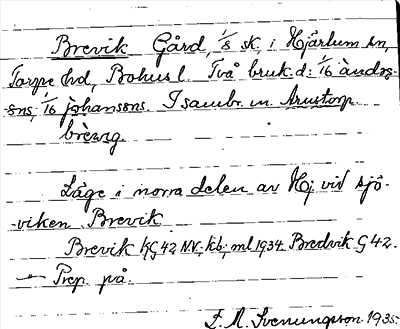 Brevik Gård, 1/8 sk, i Hjärtum sn,
Torpe hd, Bohusl. Två bruk.d: 1/16 àndoş-
sns, 1/16 johansons. I sambr. m. Arustorp
brèvıg.
Läge i norra delen av Hj vid sjö-
-viken Brevik
Brevik KG 42 NV, kb; ml 1934 Bredvik G 42.
— Prep. på.
F. M. Svenungsson 1935